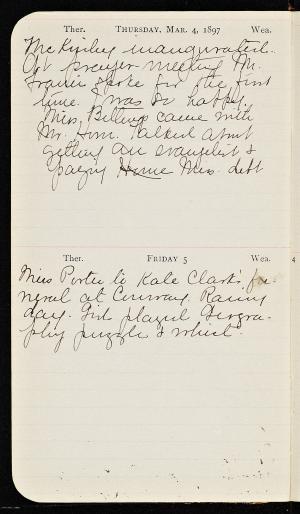 Ther. THURSDAY, MAR. 4, 1897 Wea.
McKinley inaugurated.
At prayer-meeting Mr.
spoke for the first
time. I was so happy.
Miss Billings came with
Mr. Talked about
getting an evangelist &
paying Home Miss. debt
Ther. FRIDAY 5 Wea. 4
Miss Porter to Kate Clark's fu-
neral at Conway. Rainy
day. Girls played Geogra-
phy puzzle & whist.